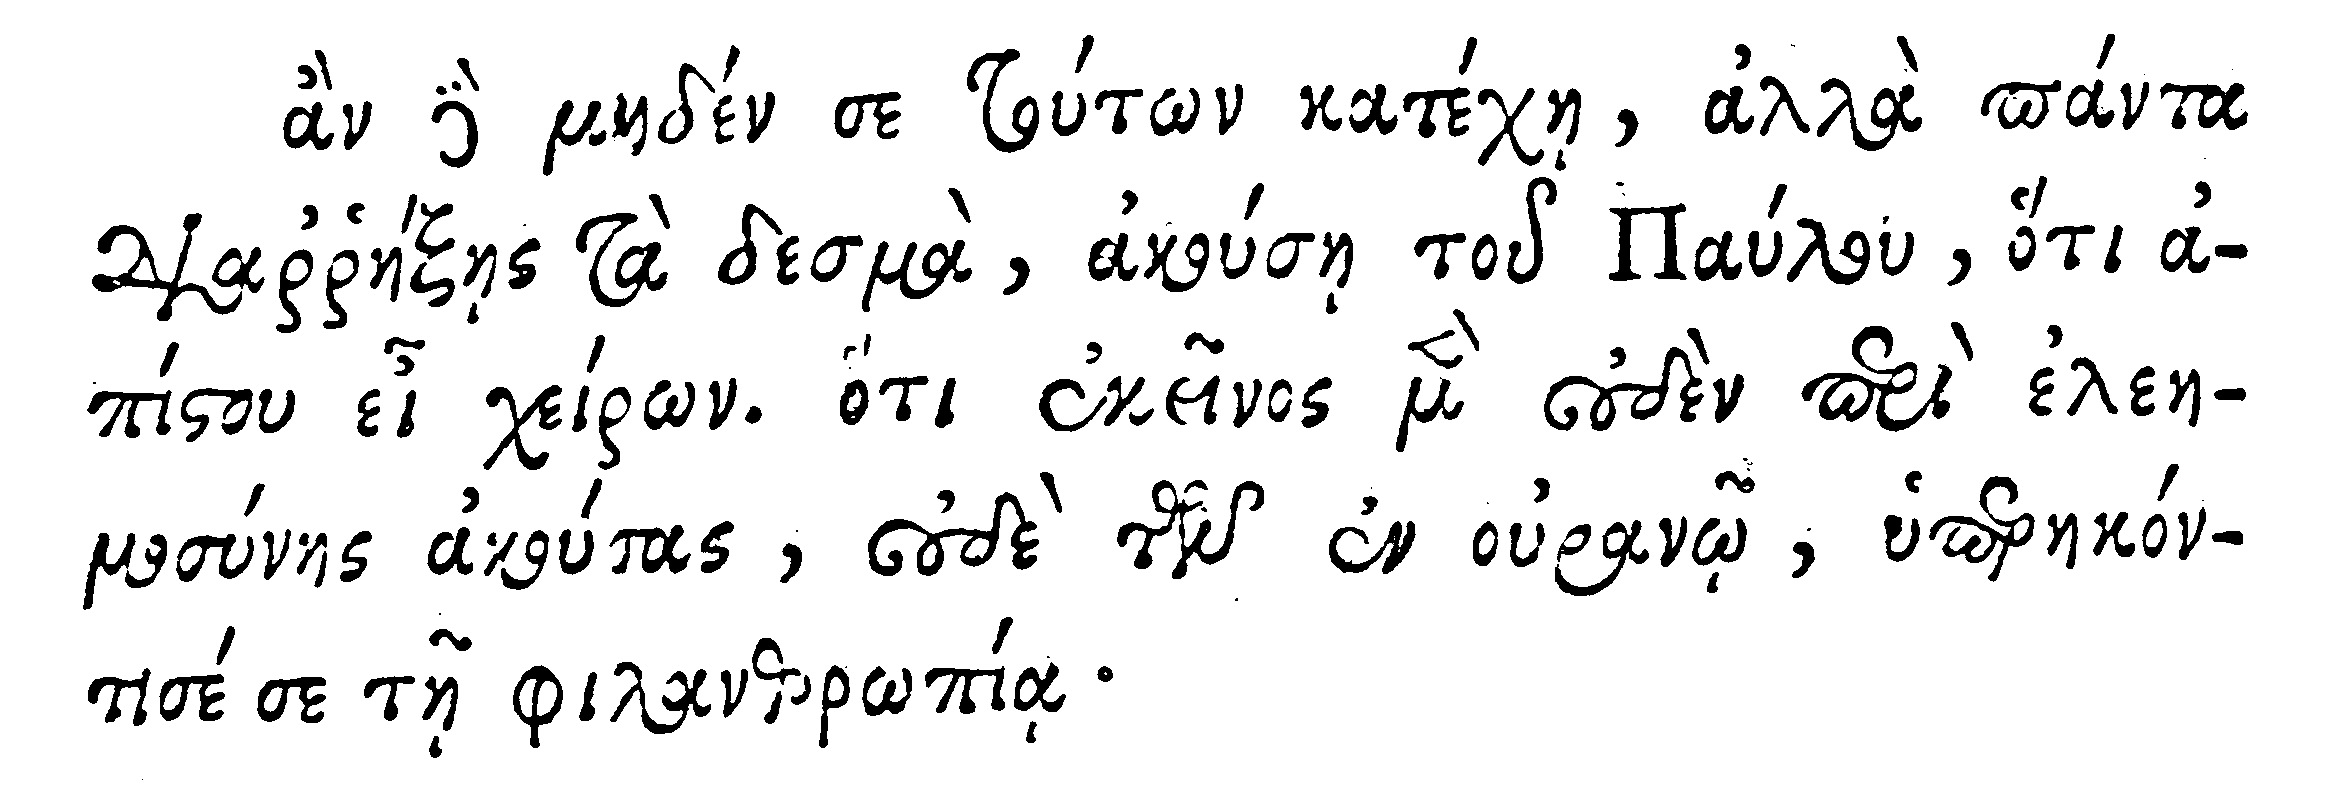 ἂν δὲ μηδέν σε τούτων κατέχῃ, ἀλλὰ πάντα
διαῤῥήξῃς τὰ δεσμὰ, ἀκούσῃ τοῦ Παύλου, ὅτι ἀ-
πίστου εἶ χείρων. ὅτι ἐκεῖνος μὲν οὐδὲν περὶ ἐλεη-
μοσύνης ἀκούσας, οὐδὲ τῶν ἐν οὐρανῷ, ὑπερηκόν-
τισέ σε τῇ φιλανθρωπίᾳ.